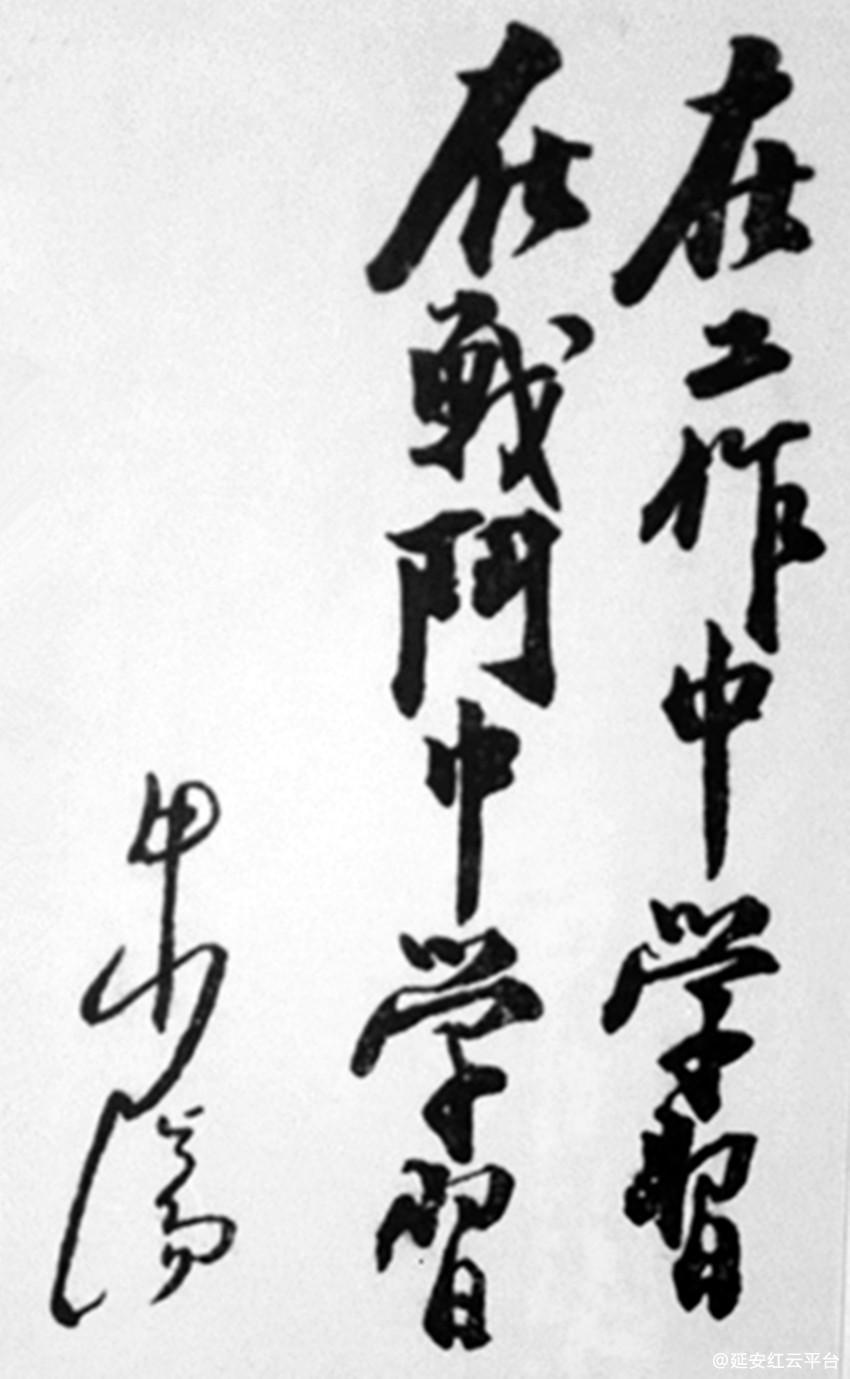 在工作中学習
在戰鬥中学習
@延安红云平台